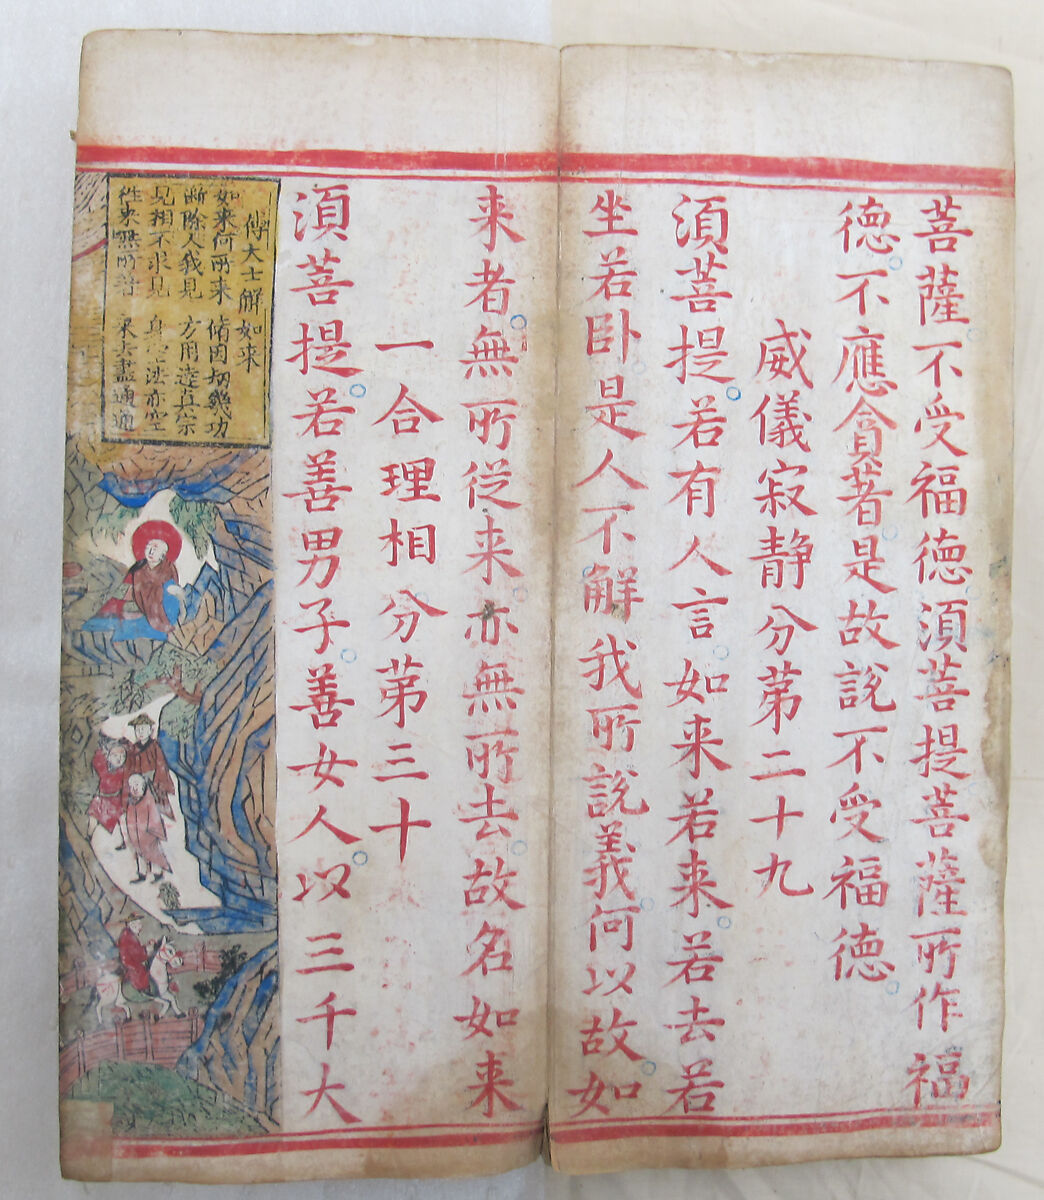 菩薩不受福德須菩提菩薩所作福
德不應貪著是故說不受福德
威儀寂静分苐二十九
湏菩提若有人言如来若来若去若
坐若卧是人不解我所說義何以故如
来者無所從来亦無所去故名如来
一合理相分苐三十
湏菩提若善男子善女人以三千大
傅大士解如来
如来何所来 脩因刼幾功
断除人我見 方用達真宗
見相不求見 身空法亦空
徃来無所著 来去盡通通